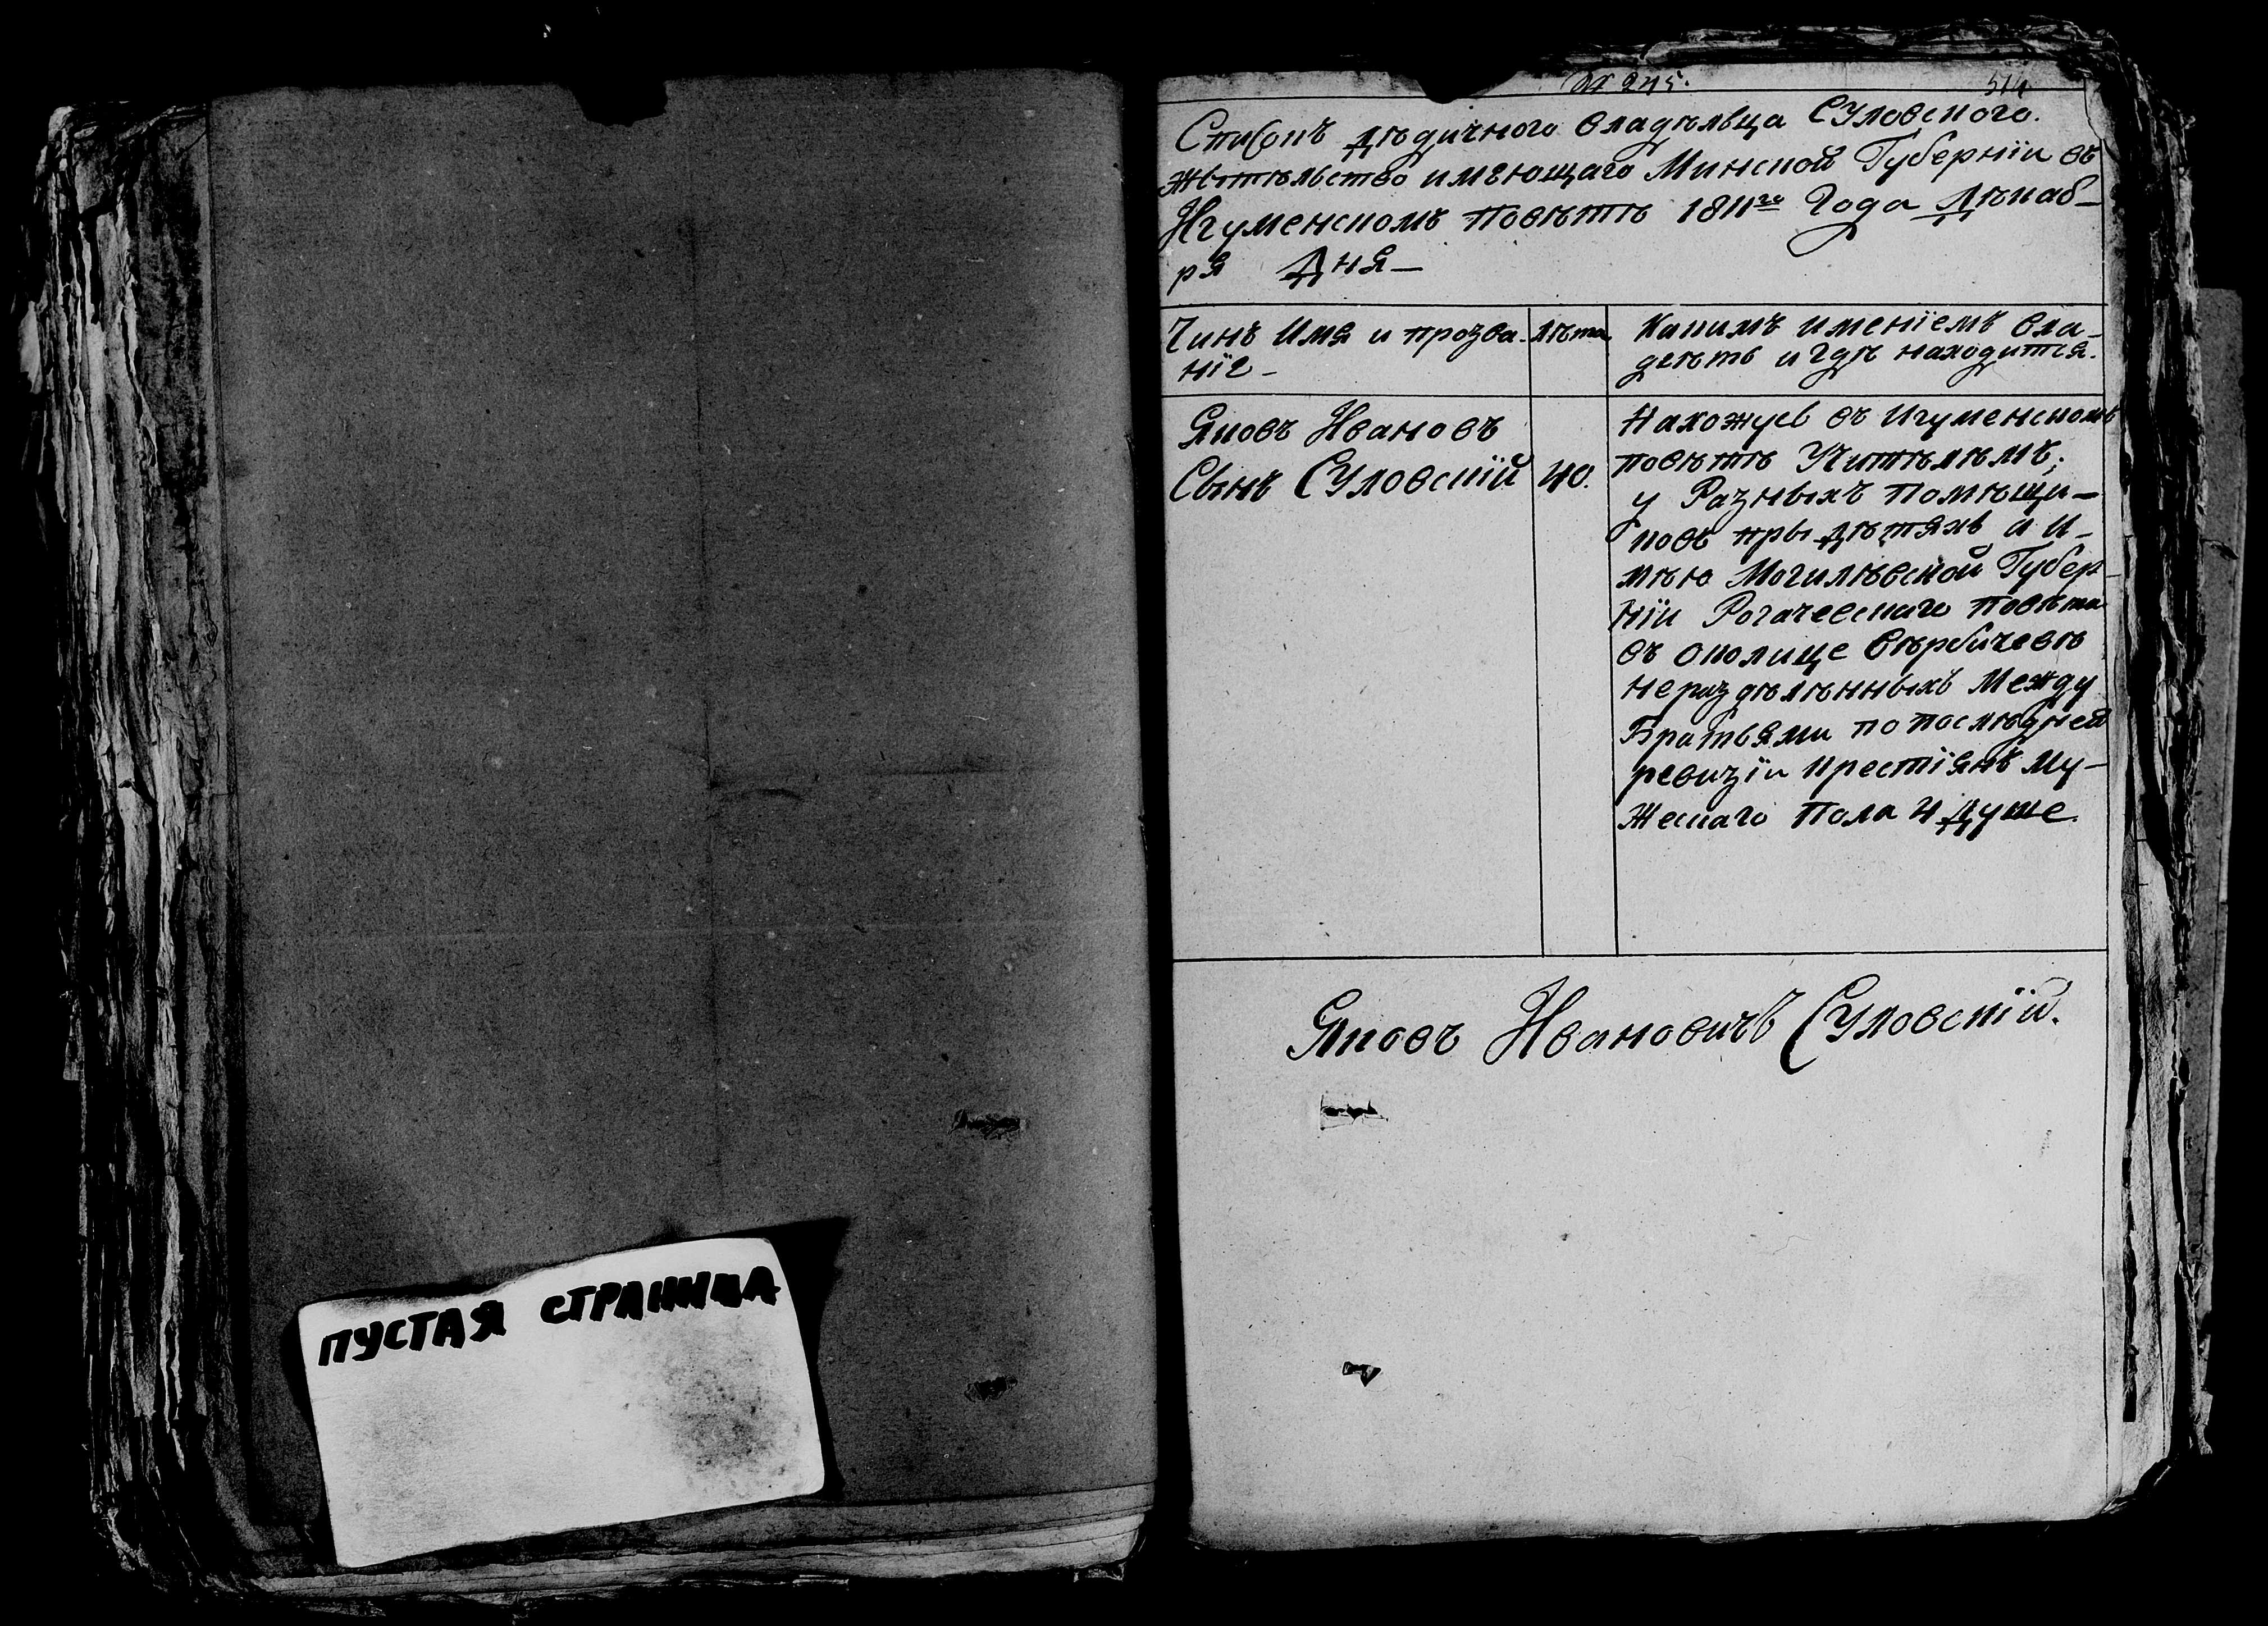 ПУСТАЯ СТРАНИЦА
№ 245.
514
Списокъ дѣдичного владѣльца Суловского.
жытѣльство имѣющаго Минской Губернїи въ
Игуменскомъ повѣтѣ 1811го Года Дѣкаб-
ря Дня-
Чинъ Имя и прозва-
нїе-
лѣта
Какимъ именїемъ вла-
дѣетъ и гдѣ находится.
Яковъ Ивановъ
Сынъ Суловскїй
40.
Нахожусь въ Игуменскомъ
повѣтѣ Учитѣлѣмъ;
у Разныхъ помѣщи-
ковъ пры дѣтяхъ а и-
мѣю Могилѣвской Губер-
нїи Рогачевскаго повѣта
въ околице Вѣрбичевѣ
нераздѣлѣнныхъ Между
Братьями по послѣдней
ревизїи крестїянъ му-
жескаго пола 4 душе.
Яковъ Ивановичъ Суловскїй.